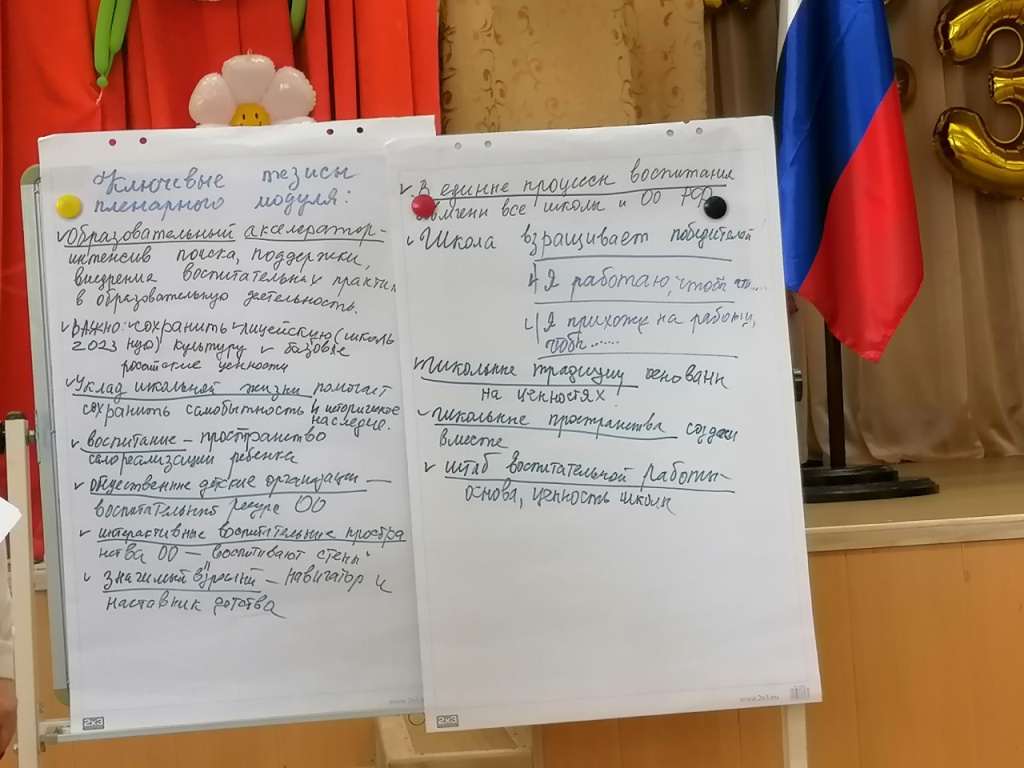 Ключевые тезисы
пленарного модуля:
✓ Образовательный акселератор-
интенсив поиска, поддержки,
внедрения воспитательных практик
в образовательную деятельность.
✓ Важно: сохранить лицейскую (школь
2023 ную) культуру ✓ базовые
российские ценности
✓ Уклад школьной жизни помогает
сохранить самобытность и историческое
наследие.
✓ воспитание – пространство
самореализации ребенка
✓ общественные детские организации –
воспитательный ресурс ОО
✓ интерактивные воспитательные простра
нства ОО – воспитывают стены"
✓ значимый взрослый – навигатор и
наставник детства
www.2x3.ru
2x3
✓ В единне процессы воспитания
все школы и ОО РФ
✓ Школа взращивает победителей
Я работаю, чтоб что....
Я прихожу на работу,
чтобы ......
✓ Школьные традиции основаны
на ценностях
✓ Школьные пространства создаем
вместе
✓ штаб воспитательной работы-
основа, ценность школы
www.2x3.ru
2x3
3